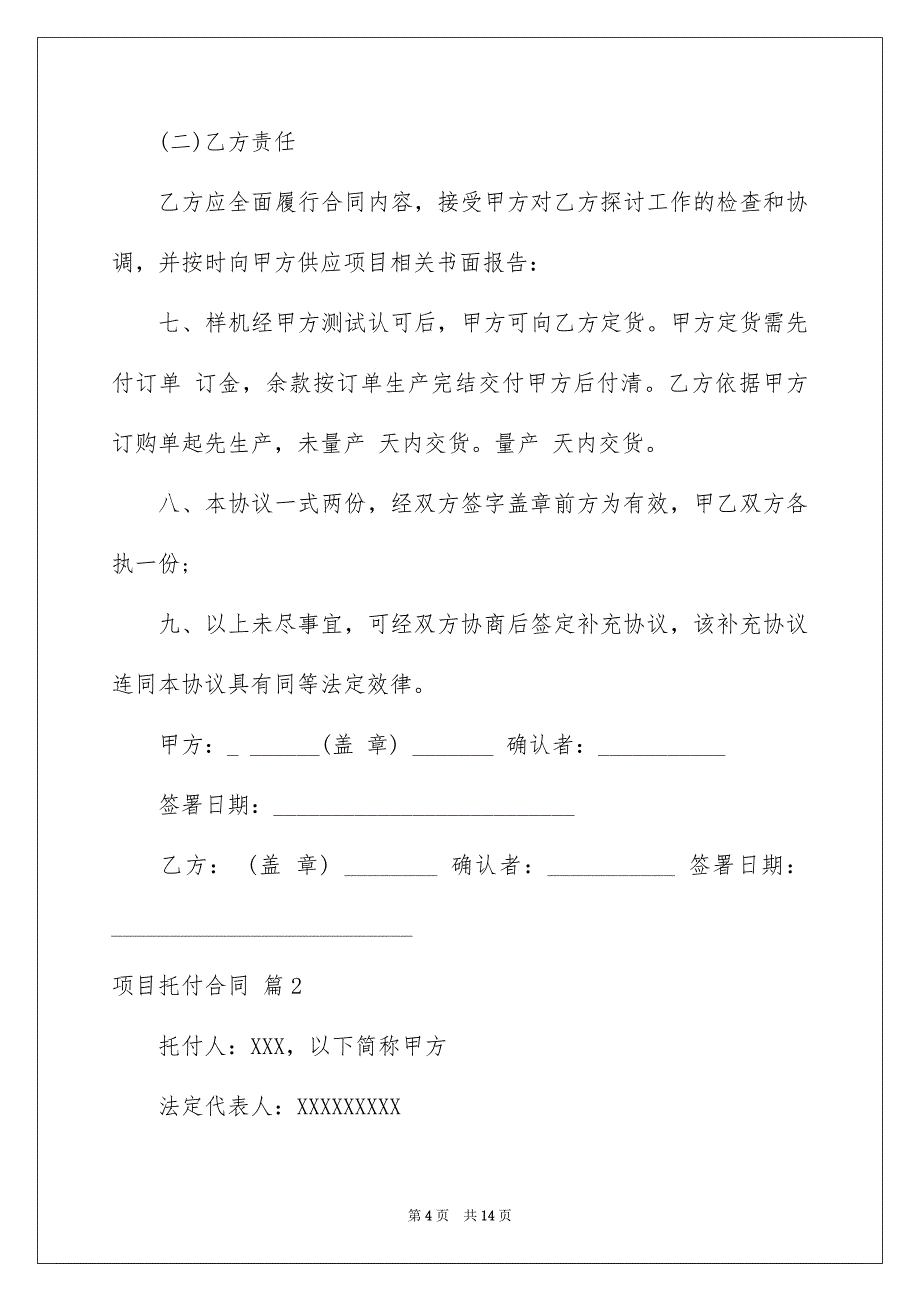 (二)乙方责任
乙方应全面履行合同内容，接受甲方对乙方探讨工作的检查和协
调，并按时向甲方供应项目相关书面报告：
七、样机经甲方测试认可后，甲方可向乙方定货。甲方定货需先
付订单 订金，余款按订单生产完结交付甲方后付清。乙方依据甲方
订购单起先生产，未量产 天内交货。量产 天内交货。
八、本协议一式两份，经双方签字盖章前方为有效，甲乙双方各
执一份；
九、以上未尽事宜，可经双方协商后签定补充协议，该补充协议
连同本协议具有同等法定效律。
甲方：_ ______(盖 章) _______ 确认者：___________
签署日期：__________________________
乙方： (盖 章) ________ 确认者：___________ 签署日期：
__________________________
项目托付合同 篇2
托付人：XXX，以下简称甲方
法定代表人：XXXXXXXXX
第 4 页 共 14 页